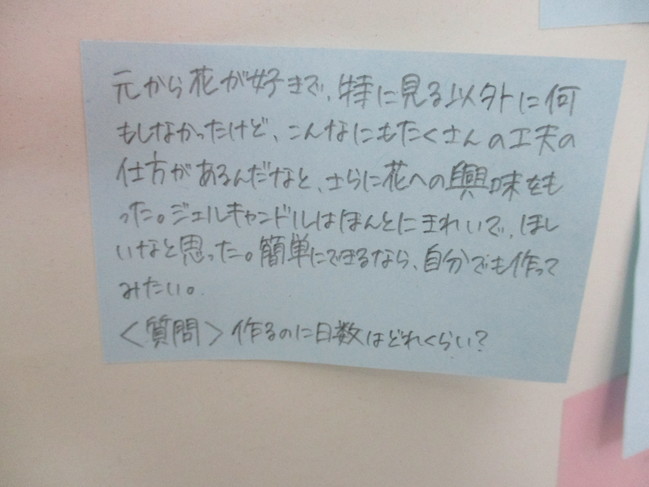 元から花が好きで、特に見る以外に何
もしなかったけど、こんなにもたくさんの工夫の
仕方があるんだなと、さらに花への興味をも
った。ジェルキャンドルはほんとにきれいで、ほし
いなと思った。簡単にできるなら、自分でも作って
みたい。
＜質問＞作るのに日数はどれくらい？